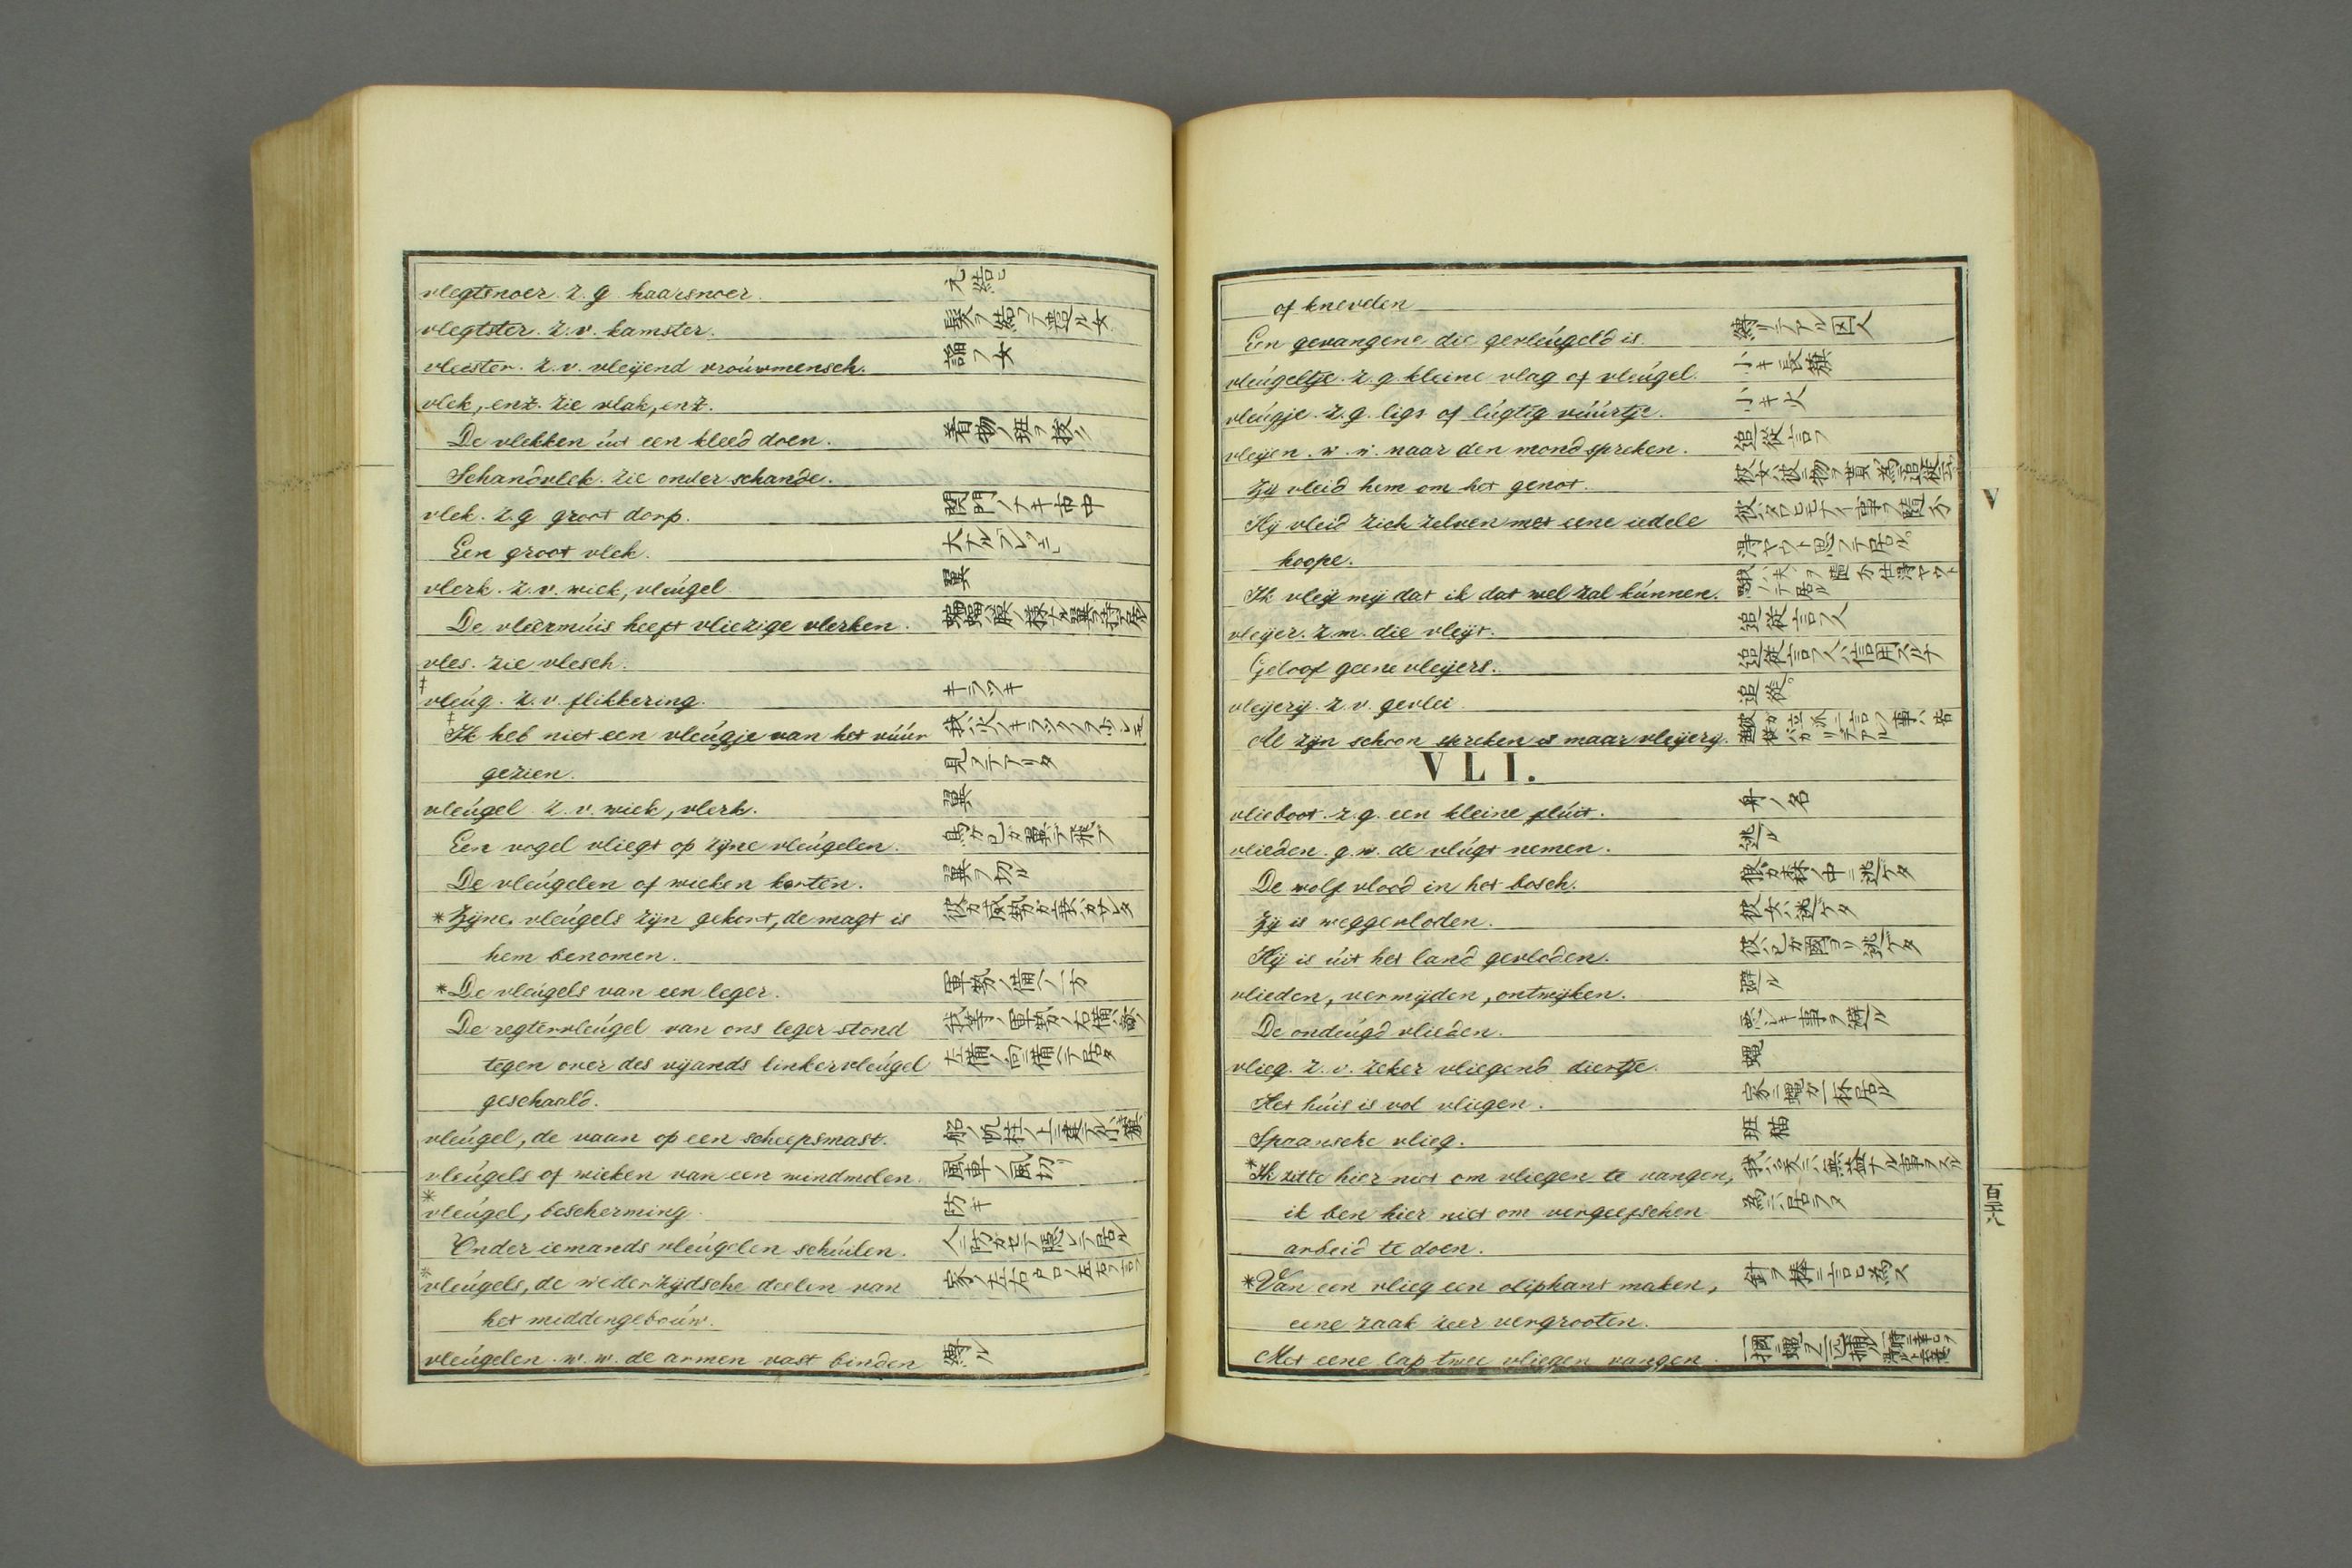 vlegtsnoer. z. g. haarsnoer. 元結ヒ
vlegtster. z. v. kamster. 髪ヲ結フテ遣ル女
vleister. z. v. vleijend vroúwmensch. 諂フ女
vlek, enz. zie vlak, enz.
De vlekken úit een kleed doen. 着物ノ班ヲ抜ク
Schandvlek. zie onder schande.
vlek. z. g groot dorp. 関門ノナキ市中
Een groot vlek. 大ナル
vlerk. z. v. wiek, vleúgel. 翼
De vleêrmúis heeft vliezige vlerken. 蝙蝠ハ膜ノ様ナル翼ヲ持テ居ル
vles. zie vlesch.
‡vleúg. z. v. flikkering. キラツキ
‡Ik heb niet een vleúgje van het vúúr 我ハ火ノキラツクヲ少シモ
gezien. 見ナンダ
vleúgel. z. v. wiek, vlerk. 翼
Een vogel vliegt op zijne vleúgelen. 鳥ガ己ガ翼デ飛ブ
De vleúgelen of wieken korten. 翼ヲ切ル
*Zijne vleúgels zijn gekort, de magt is 彼ガ威勢ガ
hem benomen.
*De vleúgels van een leger. 軍勢ノ備ヘノ一方
De regtervleúgel van ons leger stond 我等ノ軍勢ノ右備ハ敵ノ
tegen over des vijands linkervleúgel 左備ノ向ニ備ヘテ居タ
geschaald.
vleúgel, de vaan op een scheepsmast. 船ノ帆柱ノ上ニ建テル小旗
vleúgels of wieken van een windmolen. 風車ノ風切リ
*vleúgel, bescherming. 防キ
Onder iemands vleúgelen schúilen. 人ニ防ガセテ隠レテ居ル
*vleúgels, de wederzijdsche deelen van 家ノ左右
het middengeboúw.
vleúgelen. w. w. de armen vast binden 縛ル
of knevelen
Een gevangene die gevleúgeld is. 縛リテアル囚人
vleúgeltje. z. g. kleine vlag of vleúgel. 小キ長旗
vleúgje. z. g. ligt of lúgtig vúúrtje. 小キ火
vleijen. w. w. naar den mond spreken. 追従言フ
Zij vleid hem om het genot. 彼女ハ彼ニ物ヲ貰フ為ニ追従云フ
Hij vleid zich zelven met eene iedele
hoope. 得ヤウト思フテ居ル
Ik vleij mij dat ik dat wel zal kúnnen. 我ハ夫レヲ随分仕得ヤウト思フテ居ル
vleijer. z. m. die vleijt. 追従言フ人
Geloof geene vleijers. 追従言フ人ハ信用スルナ
vleijerij. z. v. gevlei. 追従
Al zijn schoon spreken is maar vleijerij.
VLI.
vlieboot. z. g. een kleine flúit. 舟ノ名
vlieden. g. w. de vlúgt nemen. 逃ル
De wolf vlood in het bosch. 狼ガ森ノ中ニ逃ゲタ
Zij is weggevloden. 彼女ハ逃ゲタ
Hij is úit het land gevloden. 彼ハ己ガ國ヨリ逃ゲタ
vlieden, vermijden, ontwijken. 避ル
De ondeúgd vlieden. 悪シキ事ヲ避ル
vlieg. z. v. zeker vliegend diertje. 蝿
Het húis is vol vliegen. 家ニ蝿ガ一杯居ル
Spaansche vlieg. 班猫
*Ik zitte hier niet om vliegen te vangen, 我ハ爰ニハ無益ナル事ヲスル
ik ben hier niet om vergeefschen 為ニハ居ラヌ
arbeid te doen.
*Van een vlieg een oliphant maken, 針ヲ棒ニ言ヒ為ス
eene zaak zeer vergrooten.
Met eene lap twee vliegen vangen.
V